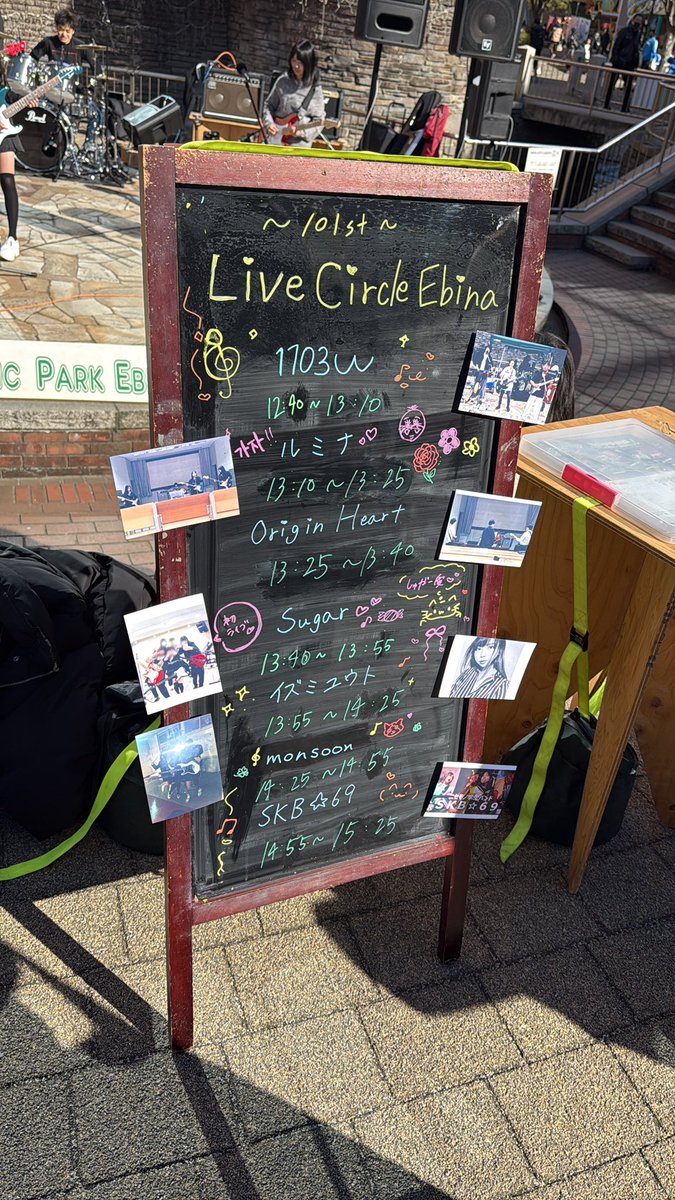 ~101st~
Live Circle Ebina
1703W
12:40~13:10
ルミナ
13:10~13:25
Origin Heart
13:25~13:40
しゅがー屋
初ライブ
Sugar
13:40~13:55
イズミユウト
13:55~14:25
monsoon
14:25~14:55
SKB☆69
14:55~15:25
IC PARK EB
Pearl
SKB☆69